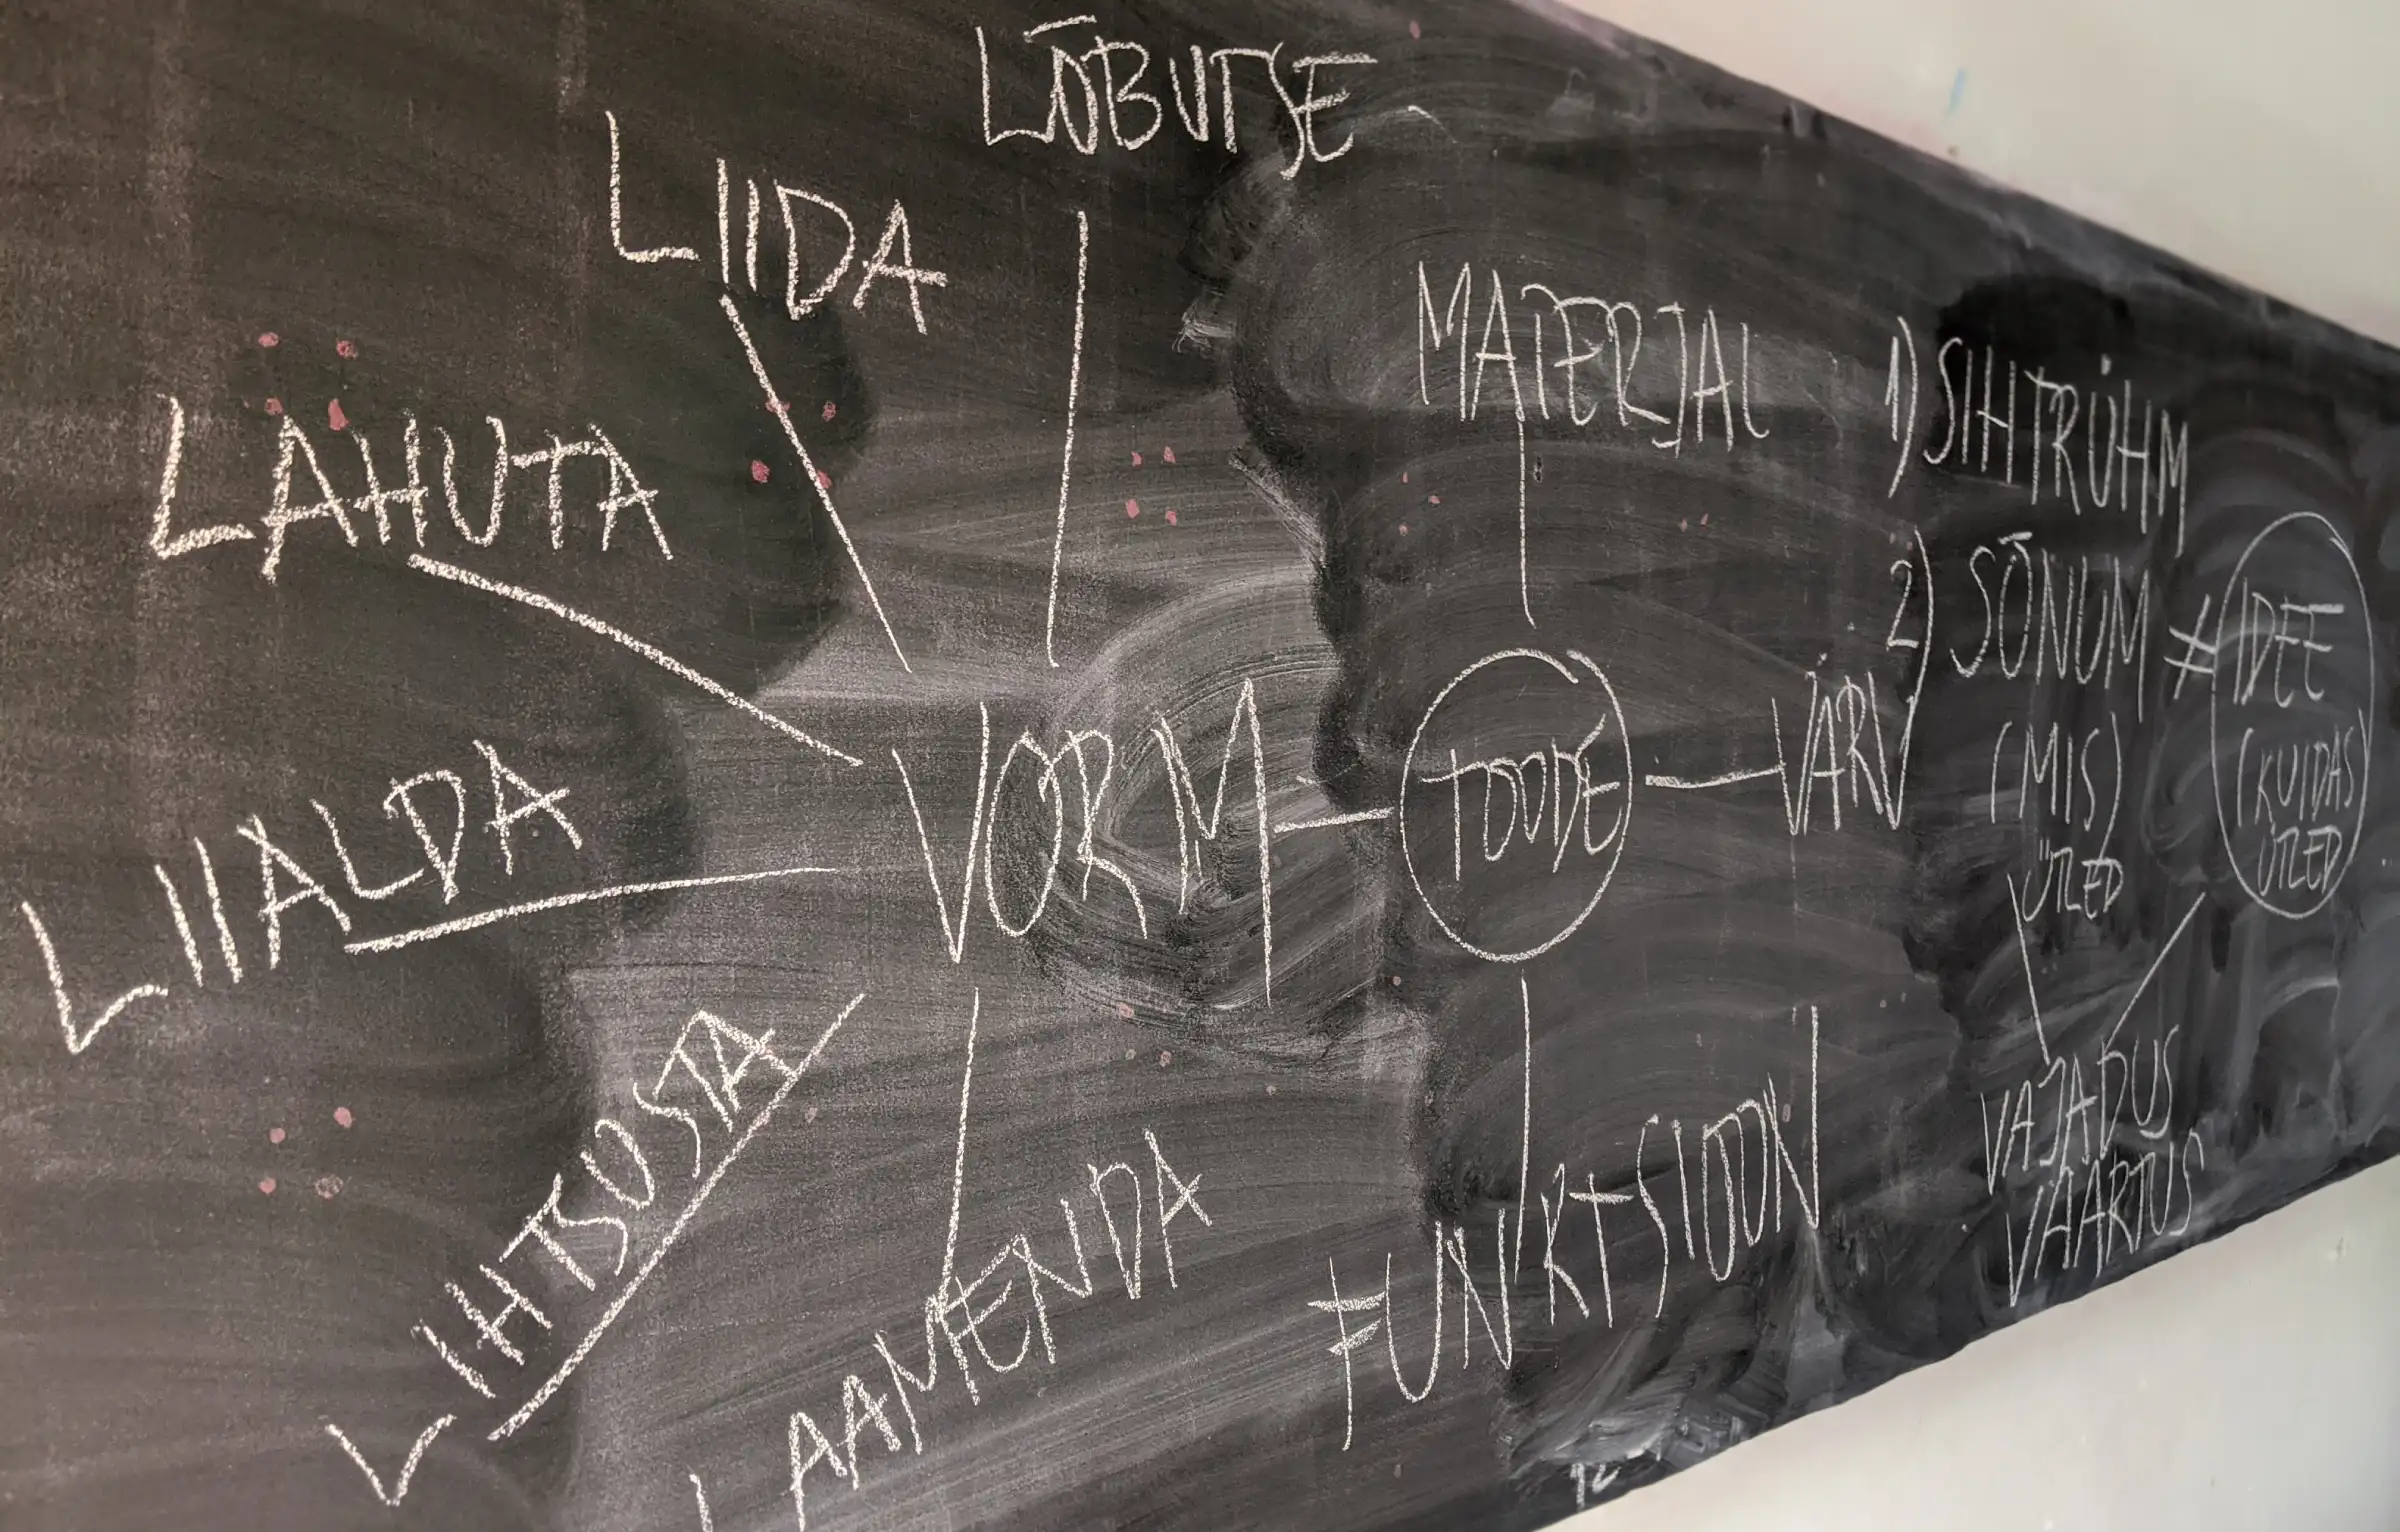 LÕBUTSE
LIIDA
LAHUTA
LIIALDA
LIHTSUSTA
LAAMENDA
VORM
TOODE
MATERJAL
VÄRV
FUNKTSIOON
1) SIHTRÜHM
2) SÕNUM ≠ IDEE
(MIS) ÜTLED
(KUIDAS) ÜTLED
VAJADUS
VÄÄRTUS